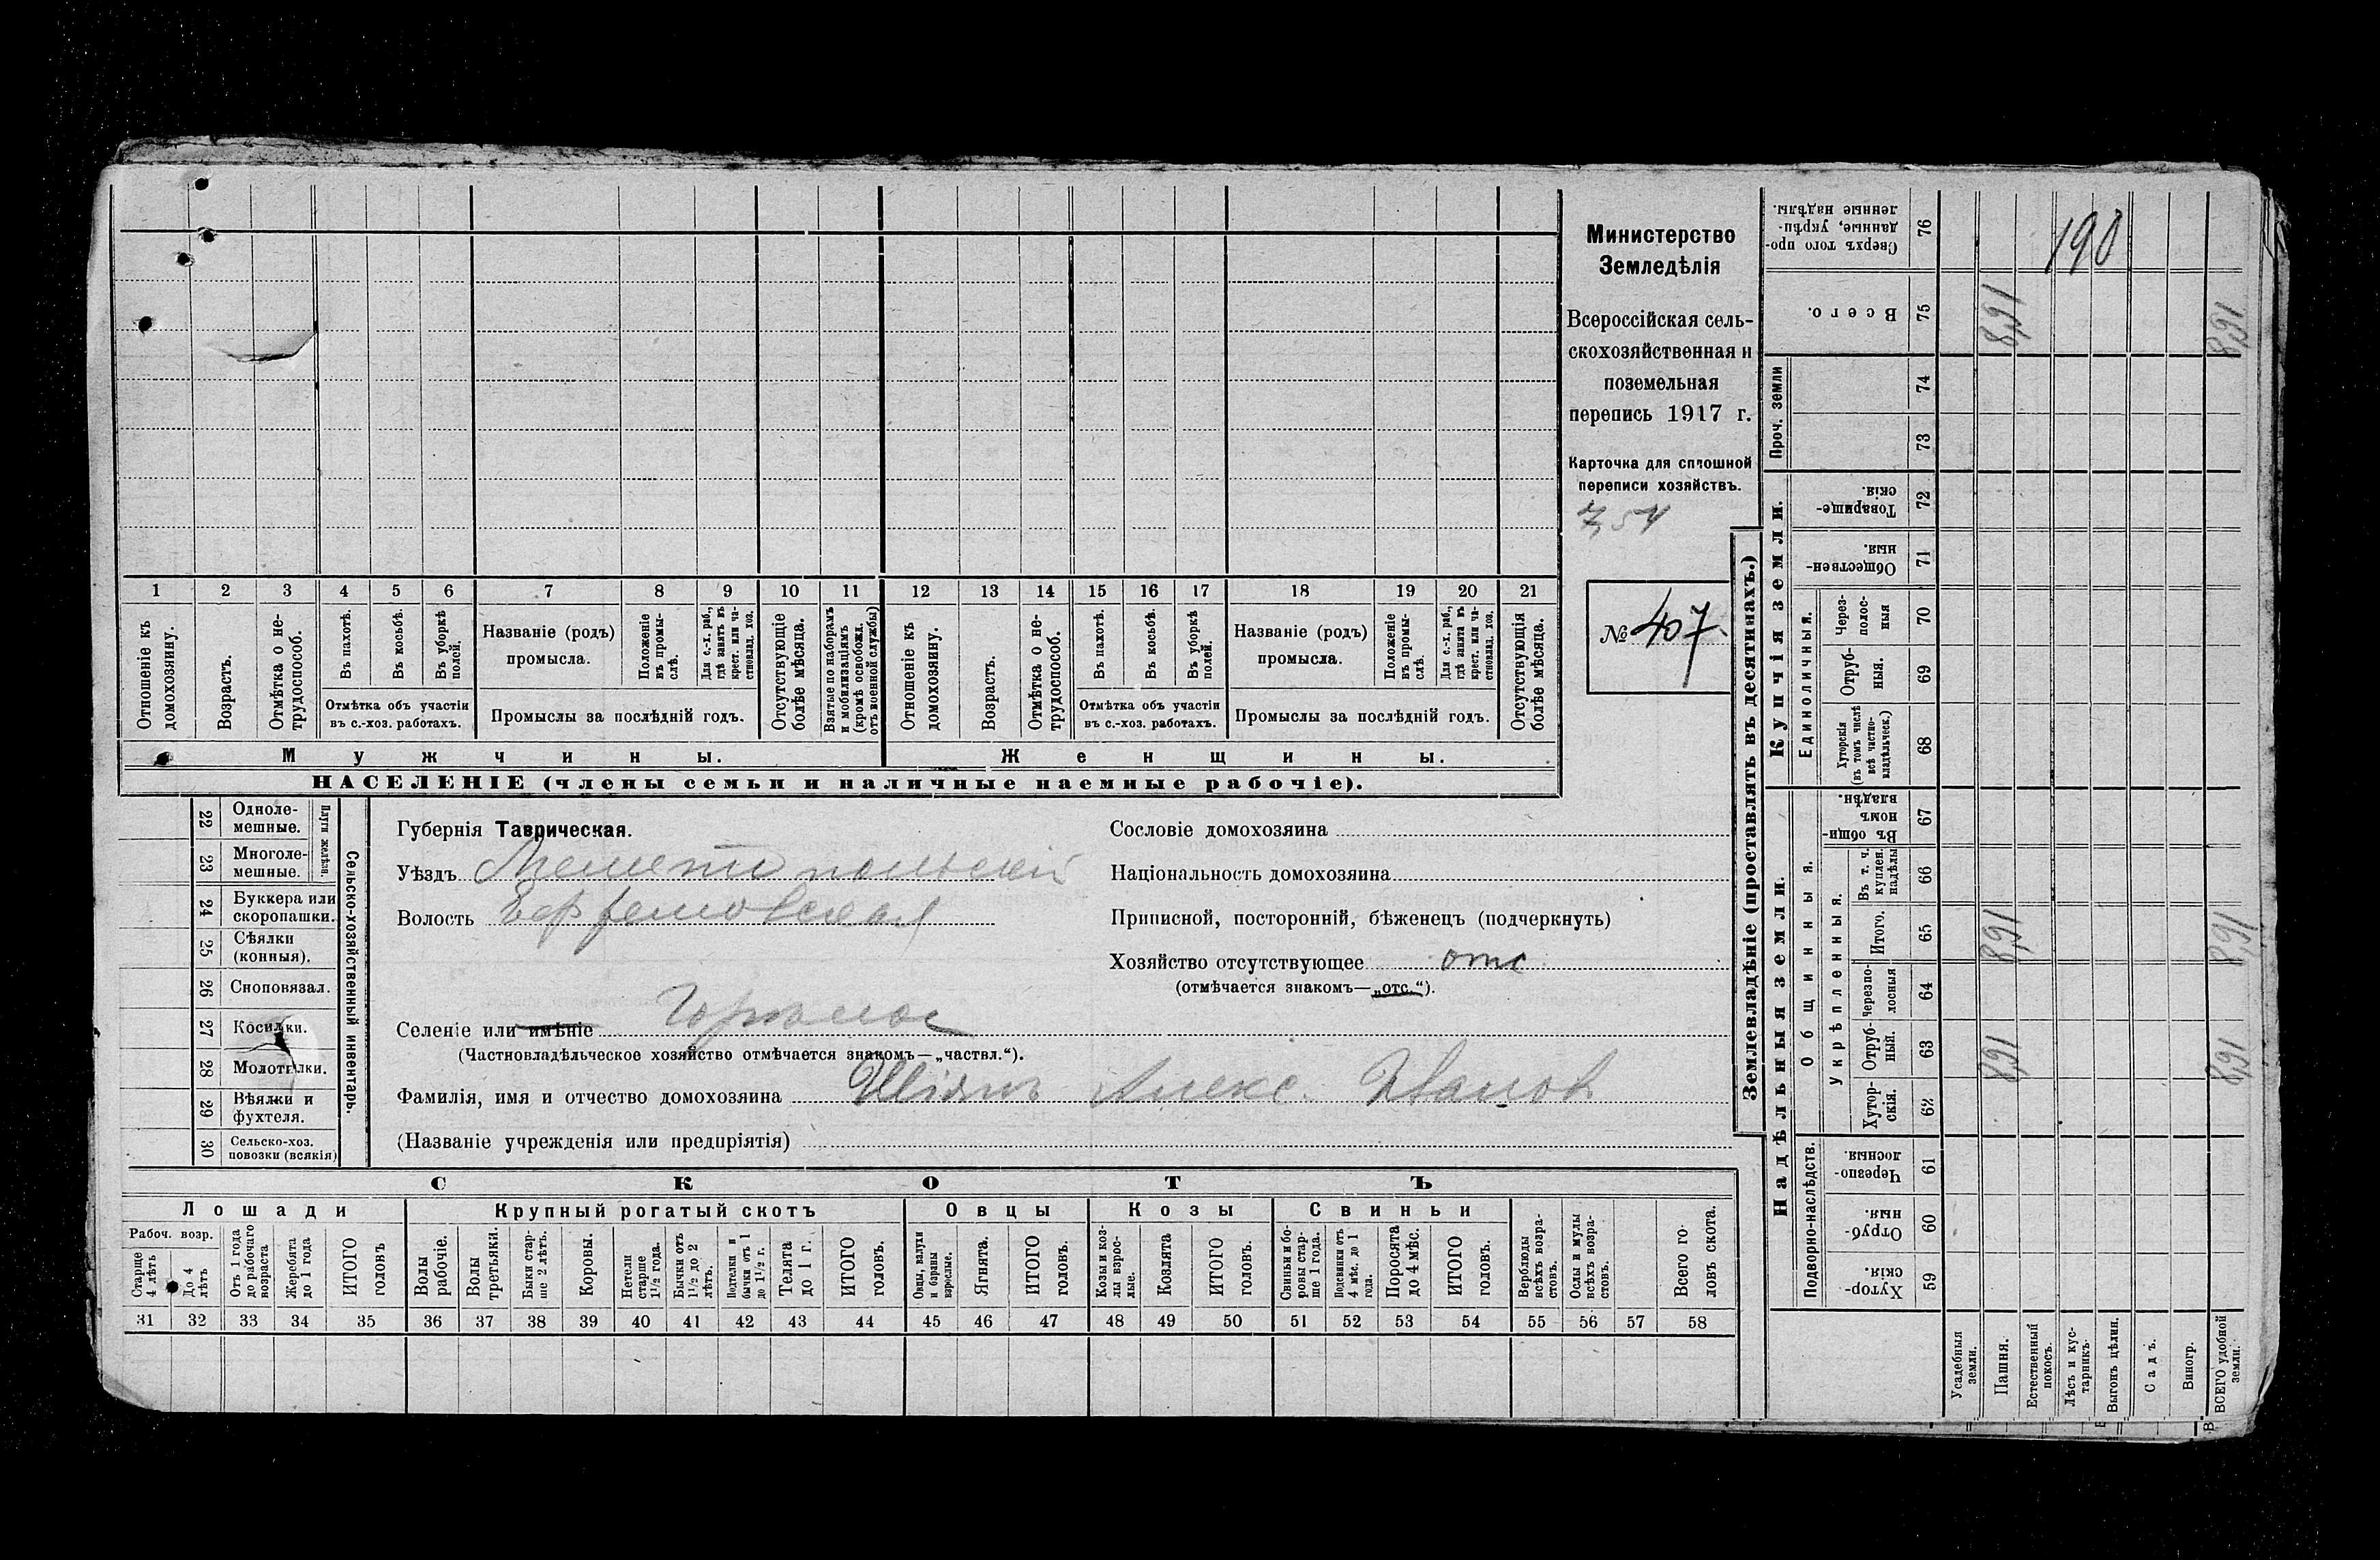 1 2 3 4 5 6 7 8 9 10 11 12 13 14 15 16 17 18 19 20 21
Отношеніе къ домохозяину.
Возрастъ.
Отмѣтка о не-трудоспособ.
Въ пахотѣ.
Въ косьбѣ.
Въ уборкѣ полей.
Отмѣтка объ участіи
въ с.-хоз. работахъ.
Названіе (родъ)
промысла.
Положеніе въ промы-слѣ.
Для с.-х. раб., гдѣ занятъ въ крест. или ча-стновлад. хоз.
Промыслы за послѣдній годъ.
Отсутствующіе болѣе мѣсяца.
Взятые по наборамъ и мобилизаціямъ (кромѣ освобожд. отъ военной службы)
Отношеніе къ домохозяину.
Возрастъ.
Отмѣтка о не-трудоспособ.
Въ пахотѣ.
Въ косьбѣ.
Въ уборкѣ полей.
Отмѣтка объ участіи
въ с.-хоз. работахъ.
Названіе (родъ)
промысла.
Положеніе въ промы-слѣ.
Для с.-х. раб., гдѣ занята въ крест. или ча-стновлад. хоз.
Промыслы за послѣдній годъ.
Отсутствующія болѣе мѣсяца.
Мужчины.
Женщины.
НАСЕЛЕНІЕ (члены семьи и наличные наемные рабочіе).
Министерство
Земледѣлія
Всероссійская сель-
скохозяйственная и
поземельная
перепись 1917 г.
Карточка для сплошной
переписи хозяйствъ.
7,54
№ 407.
22 Одноле-мешные.
23 Многоле-мешные.
Плуги желѣзн.
24 Буккера или скоропашки.
25 Сѣялки (конныя).
26 Сноповязал.
27 Косилки.
28 Молотилки.
29 Вѣялки и фухтеля.
30 Сельско-хоз. повозки (всякія)
Сельско-хозяйственный инвентарь.
Губернія Таврическая.
Уѣздъ Мелитопольскій
Волость Ефремовская
Селеніе или имѣніе
(Частновладѣльческое хозяйство отмѣчается знакомъ—„частвл.“).
Фамилія, имя и отчество домохозяина Шіянъ Алекс. Иванов
(Названіе учрежденія или предпріятія)
Сословіе домохозяина
Національность домохозяина
Приписной, посторонній, бѣженецъ (подчеркнуть)
Хозяйство отсутствующее отс
(отмѣчается знакомъ—„отс.“).
СКОТЪ
Лошади
Рабоч. возр.
Старше 4 лѣтъ
До 4 лѣтъ
Отъ 1 года до рабочаго возраста
Жеребята до 1 года
ИТОГО головъ
Крупный рогатый скотъ
Волы рабочіе.
Волы третьяки.
Быки стар-ше 2 лѣтъ.
Коровы.
Нетели старше 1½ года.
Бычки отъ 1½ до 2 лѣтъ.
Подтелки и бычки отъ 1 до 1½ г.
Телята до 1 г.
ИТОГО головъ.
Овцы
Овцы, валухи и бараны взрослые.
Ягнята.
ИТОГО головъ.
Козы
Козы и коз-лы взрос-лые.
Козлята
ИТОГО головъ.
Свиньи
Свиньи и бо-ровы стар-ше 1 года.
Подсвинки отъ 4 мѣс. до 1 года.
Поросята до 4 мѣс.
ИТОГО головъ.
Верблюды всѣхъ возра-стовъ.
Ослы и мулы всѣхъ возра-стовъ.
Всего го-ловъ скота.
31 32 33 34 35 36 37 38 39 40 41 42 43 44 45 46 47 48 49 50 51 52 53 54 55 56 57 58
Землевладѣніе (проставлять въ десятинахъ.)
Купчія земли.
Надѣльныя земли.
Сверхъ того про-данные, укрѣп-ленные надѣлы. 76
190
Всего. 75 8,91 8,91
Проч. земли
74
73
Товарище-скія. 72
Обществен-ныя. 71
Единоличныя.
Через-полос-ныя 70
Отруб-ныя. 69
Хуторскія (въ томъ числѣ всѣ частно-владѣльческ.) 68
Общинныя.
Въ общи-номъ владѣн. 67
Укрѣпленныя.
Въ т. ч. куплен. надѣлы 66
Итого. 65 8,91 8,91
Черезпо-лосныя 64
Отруб-ный. 63 8,91 8,91
Хутор-скія. 62
Подворно-наслѣдств.
Черезпо-лосныя. 61
Отруб-ныя. 60
Хутор-скія. 59
Усадебныя земли.
Пашня.
Естественный покосъ.
Лѣсъ и кус-тарникъ.
Выгонъ цѣлин.
Садъ.
Виногр.
ВСЕГО удобной земли.